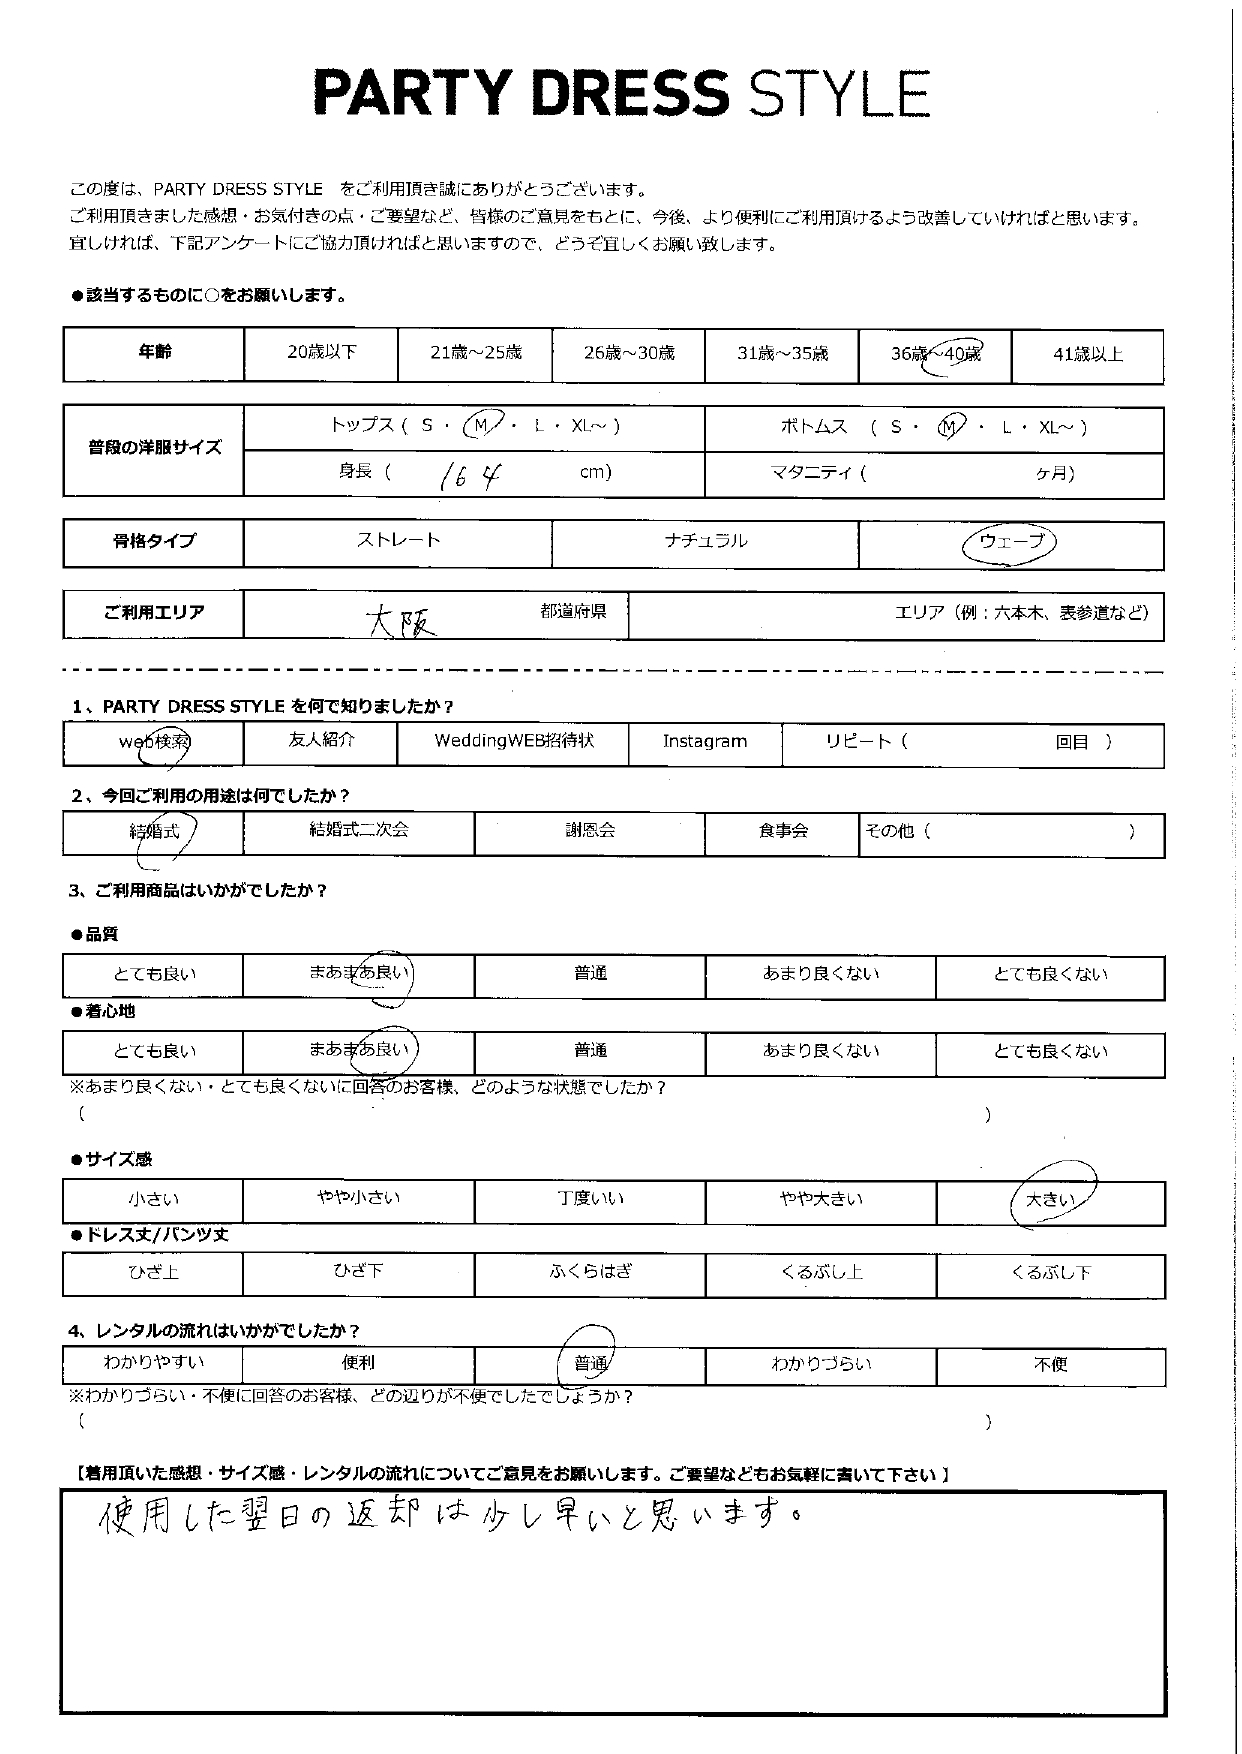 PARTY DRESS STYLE
この度は、PARTY DRESS STYLE をご利用頂き誠にありがとうございます。
ご利用頂きました感想・お気付きの点・ご要望など、皆様のご意見をもとに、今後、より便利にご利用頂けるよう改善していければと思います。
宜しければ、下記アンケートにご協力頂ければと思いますので、どうぞ宜しくお願い致します。
●該当するものに○をお願いします。
年齢 20歳以下 21歳～25歳 26歳～30歳 31歳～35歳 36歳～40歳 41歳以上
普段の洋服サイズ トップス ( S ・ M ・ L ・ XL～ ) ボトムス ( S ・ M ・ L ・ XL～ )
身長 ( 164 cm) マタニティ ( ヶ月)
骨格タイプ ストレート ナチュラル ウェーブ
ご利用エリア 大阪 都道府県 エリア（例：六本木、表参道など）
1、PARTY DRESS STYLE を何で知りましたか？
web検索 友人紹介 WeddingWEB招待状 Instagram リピート ( 回目 )
2、今回ご利用の用途は何でしたか？
結婚式 結婚式二次会 謝恩会 食事会 その他 ( )
3、ご利用商品はいかがでしたか？
●品質
とても良い まあまあ良い 普通 あまり良くない とても良くない
●着心地
とても良い まあまあ良い 普通 あまり良くない とても良くない
※あまり良くない・とても良くないに回答のお客様、どのような状態でしたか？
( )
●サイズ感
小さい やや小さい 丁度いい やや大きい 大きい
●ドレス丈/パンツ丈
ひざ上 ひざ下 ふくらはぎ くるぶし上 くるぶし下
4、レンタルの流れはいかがでしたか？
わかりやすい 便利 普通 わかりづらい 不便
※わかりづらい・不便に回答のお客様、どの辺りが不便でしたでしょうか？
( )
【着用頂いた感想・サイズ感・レンタルの流れについてご意見をお願いします。ご要望などもお気軽に書いて下さい 】
使用した翌日の返却は少し早いと思います。